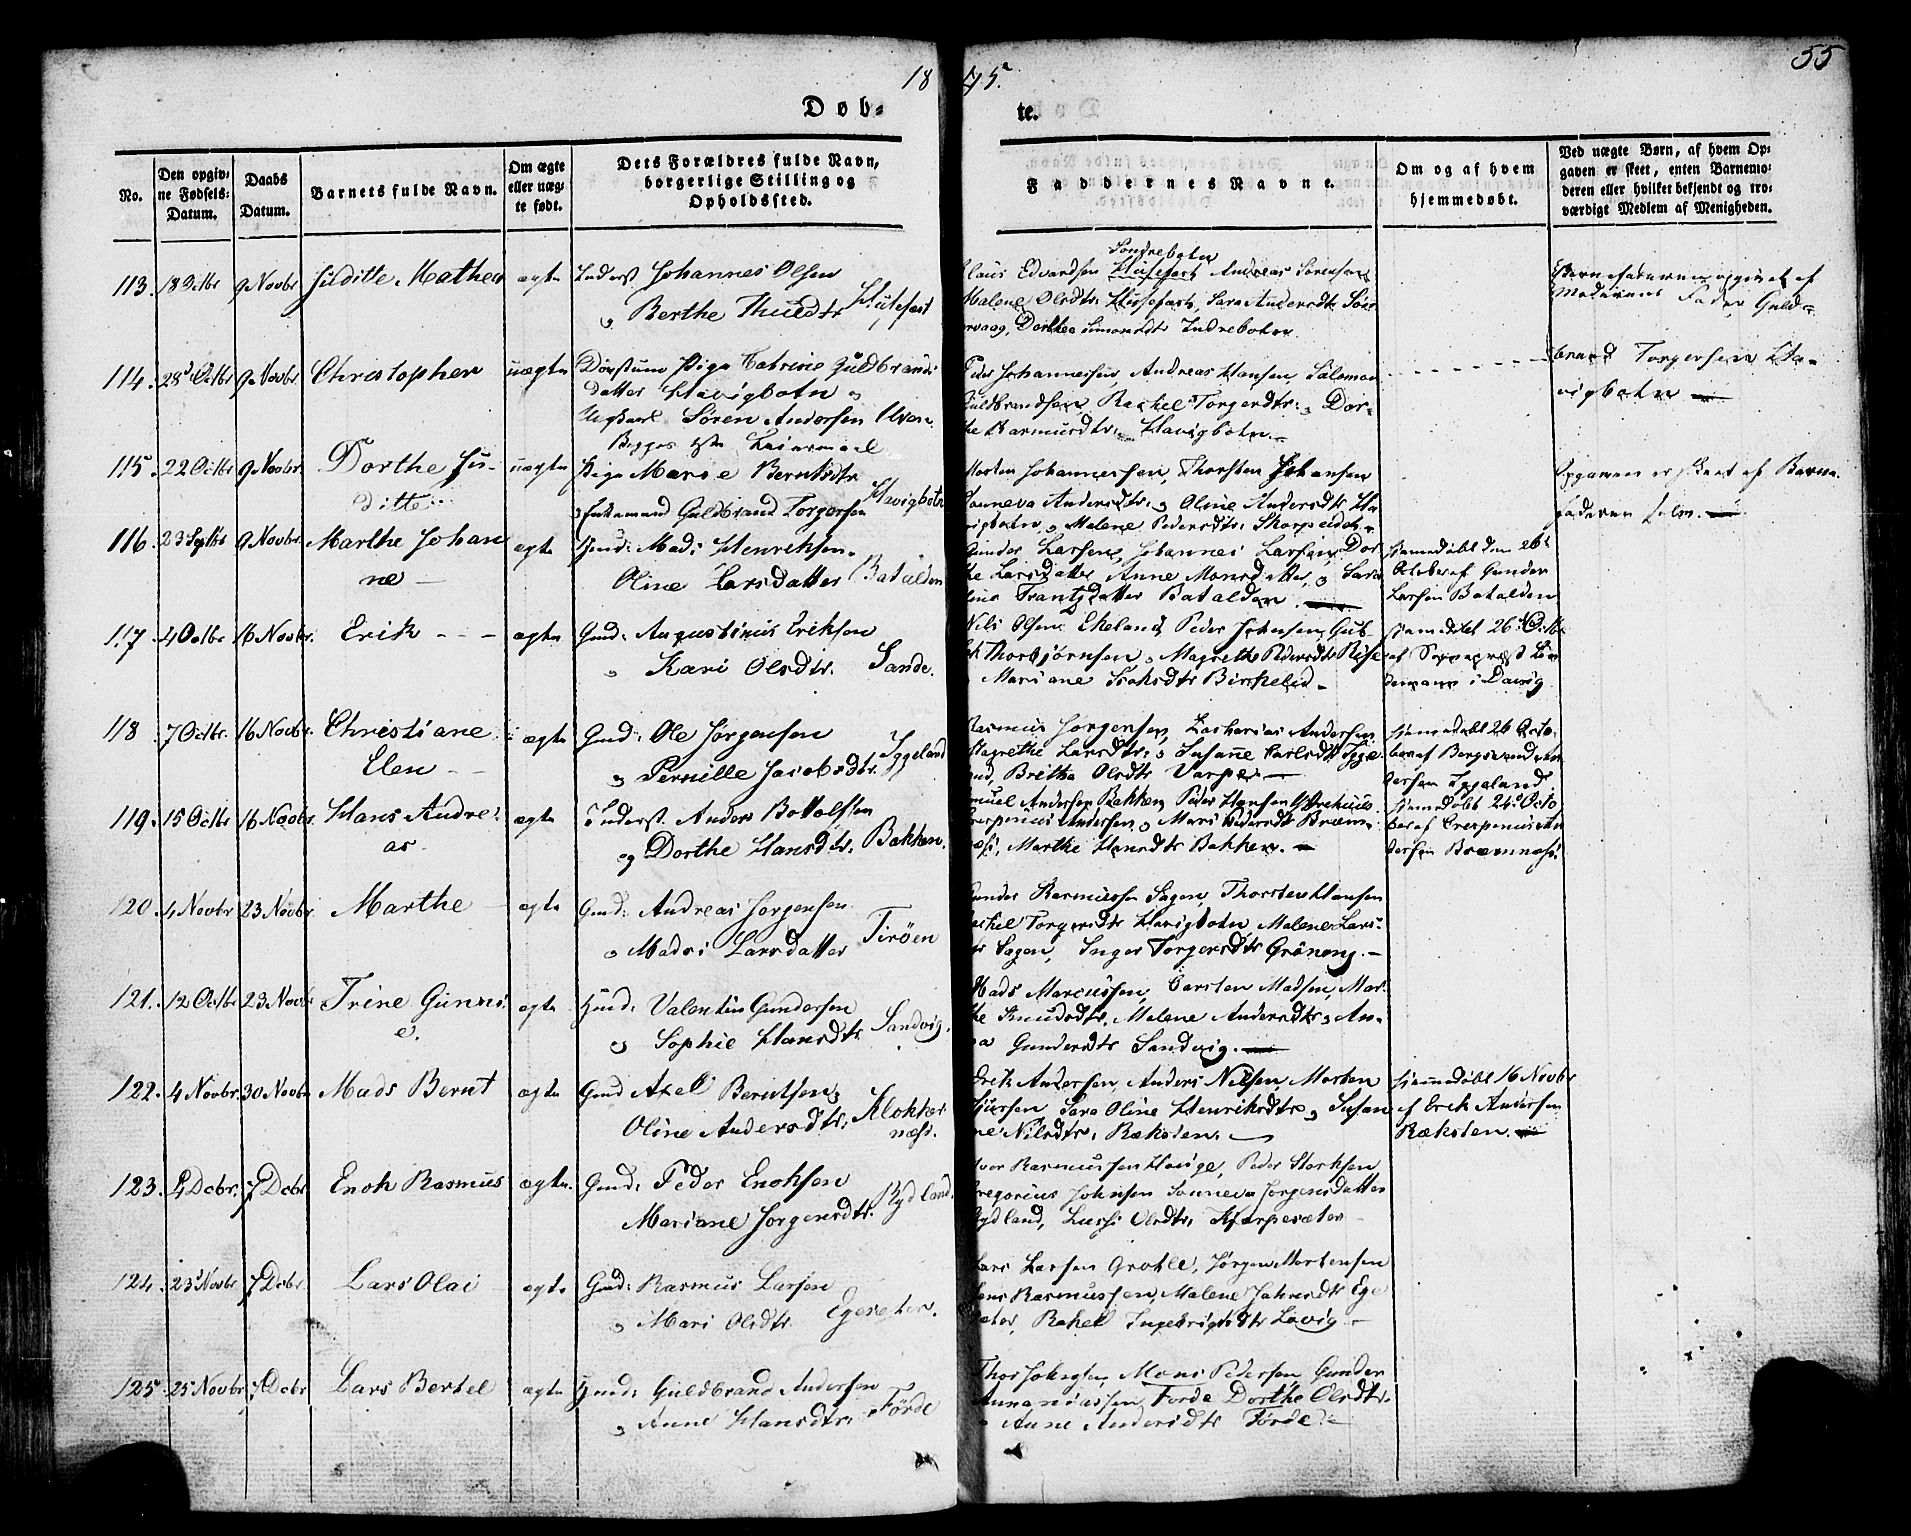 18 45.
55
Døb- te.
No.
Den opgiv-
ne Fødsels-
Datum.
Daabs
Datum.
Barnets fulde Navn.
Om ægte
eller uæg-
te født.
Dets Forældres fulde Navn,
borgerlige Stilling og
Opholdssted.
Faddernes Navne.
Om og af hvem
hjemmedøbt.
Ved uægte Børn, af hvem Op-
gaven er skeet, enten Barnemo-
deren eller hvilket bekjendt og tro-
værdigt Medlem af Menigheden.
113. 18 Octbr 9 Novbr Juditte Mathea ægte Inderst Johannes Olsen
og Berthe Knudsdtr Husefest
Søndrebotn
Claus Edvardsen Husefest Andreas Sørensen
Malene Olsdtr Husefest, Sara Andersdtr
Dorthea Simonsdtr Indrebotn
Barnefaderen opgivet af
Moderens Fader Guld-
114. 28 Octbr 9 Novbr Christopher uægte Pige Catrine Guldbrands
datter Havigbotn og
Ungkarl Søren Andersen
Begges 1ste Leiermaal
Peder Johannessen, Andreas Hansen, Salomon
Guldbrandsen Rachel Torgersdtr: og Dor-
the Rasmusdtr. Havigbotn.
brand Torgersen Ha-
vigbotn
115. 22 Octbr 9 Novbr Dorthe Ju-
ditte
uægte Pige Marie Berntsdtr
og Enkemand Guldbrand Torgersen Havigbotn
Morten Johannessen, Thorsten Johansen
Sonneva Andersdtr: og Oline Andersdtr Ha
vigbotn, og Malene Pedersdtr: Skorpeidet
Opgaven er skeet af Barne
faderen selv.
116. 23 Septbr 9 Novbr. Marthe Johan
ne
ægte Gmd: Mads Henriksen
Oline Larsdatter Batalden
Gunder Larsen, Johannes Larsen, Dor
the Larsdatter Anne Monsdatter, og Sara
lina Frantzdatter Batalden.
hjemmedøbt den 26de
October af Gunder
Larsen Batalden
117. 4 Octbr 16 Novbr. Erik ægte Gmd: Augustinus Eriksen
og Kari Olsdtr. Sande.
Nils Olsen Ekeland, Peder Johnsen, Gut-
Thorbjørnsen, og Magrethe Pedersdtr Rise
Mariane Isaksdtr Birkelid
hjemmedøbt 26 Octbr
af Sognepræst Lin
demann i Davig
118 7 Octbr. 16 Novbr. Christiane
Elen
ægte Gmd: Ole Jørgensen
og Pernille Jacobsdtr. Iggeland
Rasmus Jørgensen, Zacharias Andersen
Magrethe Larsdtr: og Susanne Carlsdtr Igge-
land, Britha Olsdtr Varpe
hjemmedøbt 26 Octo-
ber af Berg An
dersen Iggeland
119. 15 Octbr 16 Novbr. Hans Andre-
as
ægte Inderst Anders Bottolfsen
og Dorthe Hansdtr. Bakken.
Samuel Andersen Bakken, Peder Hansen
Crespenius Andersen og Mari Pedersdtr Bræm
næs, Marthe Hansdtr Bakken.
hjemmedøbt 24 Octo
ber af Crespenius An
dersen Bræmnæs.
120. 4 Novbr 23 Novbr. Marthe ægte Gmd: Andreas Jørgensen
og Madsi Larsdatter Tiröen
Gunder Rasmussen Sagen, Thorsten Hansen
Rachel Torgersdtr Havigbotn Malene Lars-
dtr Sagen, Inger Torgersdtr Grøneng.
121. 12 Octbr 23 Novbr Trine Gunni-
e.
ægte Huusmd: Valentin Gundersen
og Sophie Hansdtr. Sandvig.
Mads Marcussen, Carsten Madsen, Mar-
the Knudsdtr. Malene Andersdtr og An-
na Gundersdtr Sandvig.
122. 4 Novbr. 30 Novbr Mads Bernt ægte Gmd Axel Berntsen og
Oline Andersdtr. Klokker-
næss.
Erik Andersen, Anders Nilsen, Morten
Sara Oline Henriksdtr og Susan
ne Nilsdtr. Ræksten.
hjemmedøbt 16 Novbr
af Erik Andersen
Ræksten.
123. 4 Decbr. 7 Decbr Enok Rasmus ægte. Gmd: Peder Enoksen
Mariane Jørgensdtr. Rydland.
Iver Rasmussen Houge, Peder Storksen
Gregorius Johnsen Sonneva Jørgensdatter
Rydland, Lussi Olsdtr. Kjørpesæter
124. 23 Novbr 7 Decbr. Lars Olai ægte Gmd: Rasmus Larsen
og Mari Olsdtr. Egesæter.
Lars Larsen Grotle, Jørgen Mortensen
Jens Rasmussen, Malene Johnsdtr Ege
sæter, Rakel Ingebrigtsdtr Lavig
125. 25 Novbr 7 Decbr Lars Bertel ægte Huusmd: Guldbrand Andersen
og Anne Hansdtr. Förde
Thor Johnsen, Mons Pedersen Gunder
Annaniassen, Förde Dorthe Olsdtr.
og Anne Andersdtr Förde